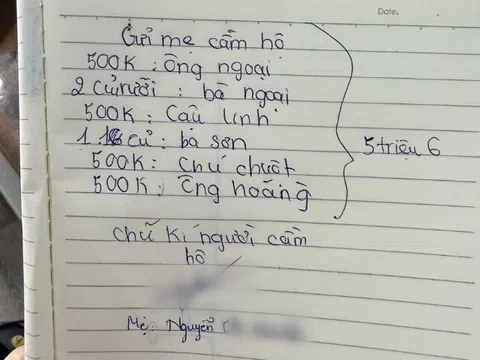 Date.
Gửi mẹ cầm hộ
500K : Ông ngoại
2 củ rưỡi : bà ngoại
500K : Cậu Linh
củ : bà sơn
500K : Chú chuột
500K : Ông hoàng
5 triệu 6
Chữ kí người cầm
hộ
Mẹ: Nguyễn